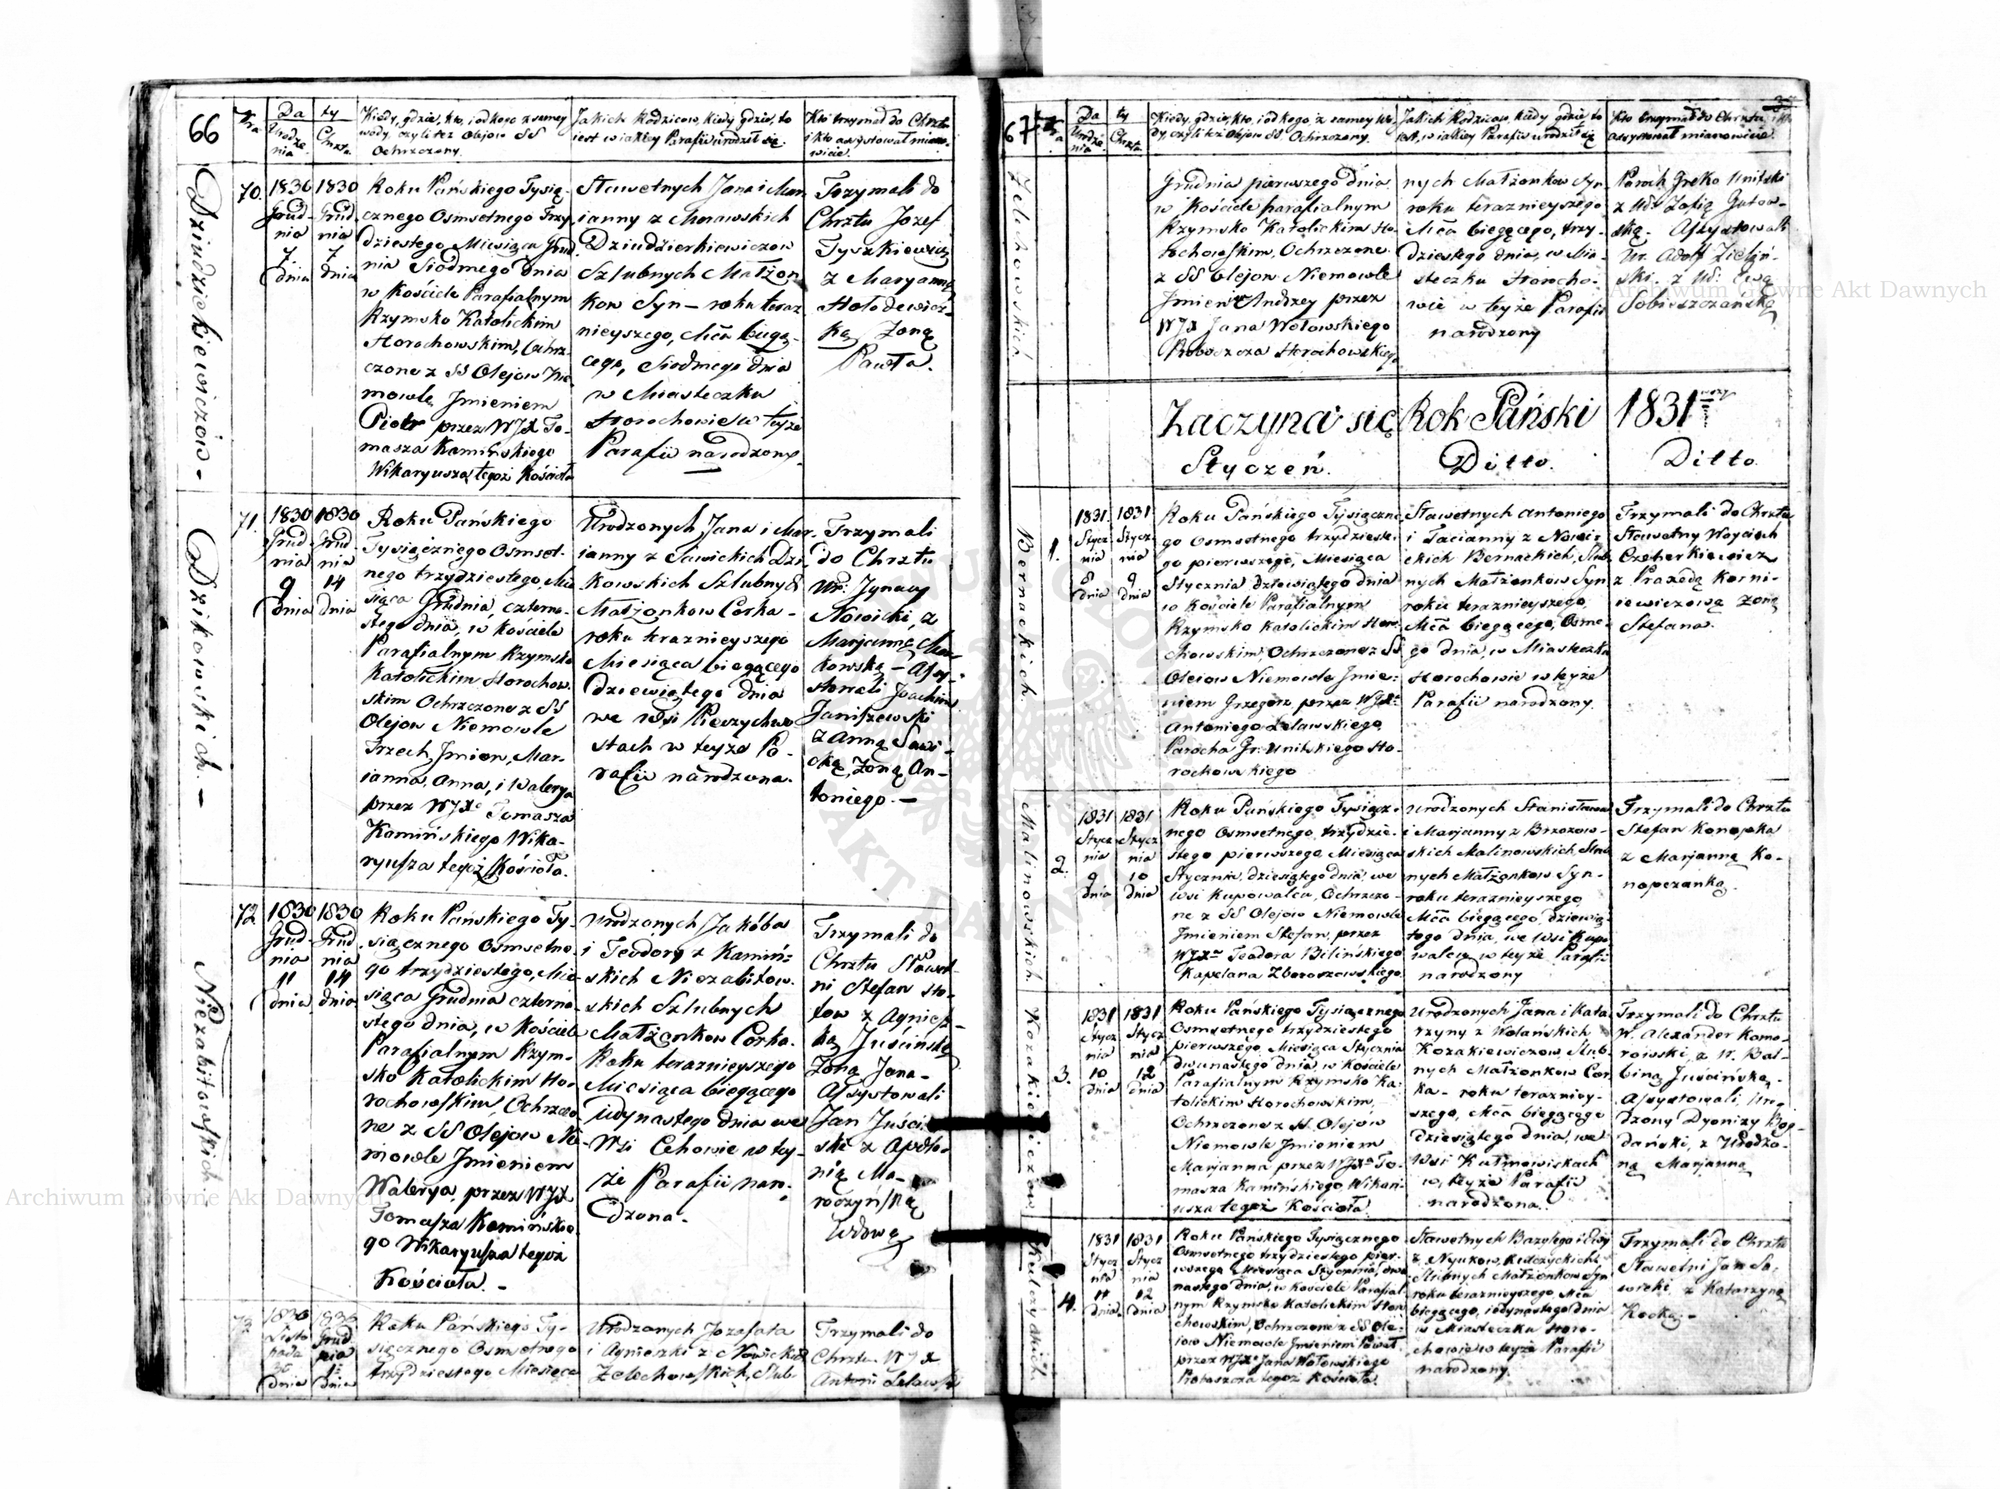 66
Nro
Da ty
Urodzenia
Chrztu
Kiedy, gdzie, kto, i od kogo z samey
wody, czyli też z Olejow SS
Ochrzczony.
Jakich Rodzicow, kiedy gdzie, to
iest w iakiey Parafii urodził się.
Kto trzymał do Chrztu
i kto assystował miano-
wicie.
Dziudzierkiewiczow -
70.
1830
Grud-
nia
7
dnia
1830
Grud-
nia
7
dnia
Roku Pańskiego Tysią-
cznego Osmsetnego Trzy-
dziestego, Miesiąca Grud
nia Siodmego dnia
w Kościele Parafialnym
Rzymsko Katolickim
Horochowskim, Ochrz-
czone z SS Olejow Nie-
mowle, Jmieniem
Piotr przez WJX To-
masza Kamińskiego
Wikaryusza tegoż Kościoła
Sławetnych Jana i Mar-
ianny z Morawskich
Dziudzierkiewiczow
Szlubnych Małżon
kow Syn - roku teraz
nieyszego, Mca bieżą-
cego, Siodmego dnia
w Miasteczku
Horochowie w teyże
Parafii narodzony.
Trzymali do
Chrztu Jozef
Tyszkiewicz
z Maryanną
Hołodewicz-
ką Żoną
Pawła.
Dzikowskich. -
71.
1830
Grud-
nia
9
dnia
1830
Grud-
nia
14
dnia
Roku Pańskiego
Tysiącznego Osmset-
nego trzydziestego, Mie
siąca Grudnia, czterna-
stego dnia, w Kościele
Parafialnym Rzymsko
Katolickim Horochow-
skim Ochrzczone z SS
Olejow Niemowle
Trzech Jmion, Mar-
ianna, Anna, i Walerya
przez WJXa Tomasza
Kamińskiego Wika-
ryusza tegoż Kościoła.
Urodzonych Jana i Mar-
ianny z Sawickich Dzi
kowskich Szlubnych
Małżonkow Corka -
roku teraznieyszego
Miesiąca bieżącego
dziewiątego dnia
we Wsi Pieczychwo
stach w teyże Pa-
rafii narodzona.
Trzymali
do Chrztu
Ur. Jgnacy
Nowicki, z
Marjanną
kowską - Assy-
stowali Joachim
Janiszewski
z Anną Sawi-
cką, Żoną An-
toniego. -
Niezabitowskich -
72
1830
Grud
nia
11
dnia
1830
Grud
nia
14
dnia
Roku Pańskiego Ty-
siącznego Osmsetne-
go trzydziestego, Mie
siąca Grudnia czterna-
stego dnia, w Kościele
Parafialnym Rzym-
sko Katolickim Ho-
rochowskim, Ochrzczo
ne z SS Olejow Nie
mowle Jmieniem
Walerya, przez WJX
Tomasza Kamińskie
go Wikaryusza tegoż
Kościoła. -
Urodzonych Jakóba
i Teodory z Kamiń-
skich Niezabitow-
skich Szlubnych
Małżonkow Corka.
Roku teraznieyszego
Miesiąca bieżącego
jedynastego dnia we
Wsi Cehowie w tey-
że Parafii naro-
dzona.
Trzymali do
Chrztu Sławet-
ni Stefan
z Agniesz-
ką Juścińską
Żoną Jana -
Assystowali
Jan Juściń
ski z Apolo-
nią
Wdową
73
1830
Listo
pada
30
dnia
1830
Grud
nia
1
dnia
Roku Pańskiego Ty-
siącznego Osmsetnego
trzydziestego Miesiąca
Urodzonych Jozefata
i Agnieszki z Nowickich
Zelechowskich, Szlub-
Trzymali do
Chrztu WJX
Antoni Lelawski
67
Nra
Da ty
Urodzenia
Chrztu
Kiedy, gdzie, kto, i od kogo, z samey wo
dy czyli też z Olejow SS Ochrzczony.
Jakich Rodzicow, kiedy gdzie to
iest, w iakiey Parafii urodził się
Kto trzymał do Chrztu i kto
assystował mianowicie.
Zelechowskich
Grudnia pierwszego dnia
w Kościele parafialnym
Rzymsko Katolickim Ho-
rochowskim, Ochrzczone
z SS Olejow Niemowle
Jmieniem Andrzey przez
WJX Jana Wołowskiego
Proboszcza Horochowskiego
nych Małżonkow Syn
roku teraznieyszego
Mca bieżącego, trzy-
dziestego dnia, w Mia-
steczku Horocho-
wie w teyże Parafii
narodzony
Paroch Greko Unitski
z Ur: Zofią Gutow-
ską. Assystowali
Ur. Adolf Zieliń-
ski, z Ur: Ewą
Sobieszczańską
Zaczyna się Rok Pański 1831wszy
Styczeń. Ditto. Ditto.
Bernackich
1.
1831
Stycz
nia
8
dnia
1831
Stycz
nia
9
dnia
Roku Pańskiego Tysiączne
go Osmsetnego trzydzieste
go pierwszego, Miesiąca
Stycznia dziewiątego dnia
w Kościele Parafialnym
Rzymsko Katolickim Horo-
chowskim, Ochrzczone z SS
Olejow Niemowle Jmie-
niem Grzegorz przez WJXa
Antoniego Lelawskiego
Parocha Gr. Unitskiego Ho-
rochowskiego
Sławetnych Antoniego
i Tacianny z Nowic-
ckich Bernackich, Szlub
nych Małżonkow Syn
roku teraznieyszego,
Mca bieżącego, Osme-
go dnia, w Miasteczku
Horochowie w teyże
Parafii narodzony.
Trzymali do Chrztu
Sławetny Woyciech
Czeberkiewicz
z Praxedą Korni-
iewiczową Żoną
Stefana.
Malinowskich
2.
1831
Stycz
nia
9
dnia
1831
Stycz
nia
10
dnia
Roku Pańskiego Tysiącz-
nego Osmsetnego, trzydzie-
stego pierwszego, Miesiąca
Stycznia, dziesiątego dnia, we
Wsi Kupowalca, Ochrzczo-
ne z SS Olejow Niemowle
Jmieniem Stefan, przez
WJXa Teodora Bilińskiego
Kapelana Zboroszewskiego
Urodzonych Stanisława
i Marjanny z Brzozow-
skich Malinowskich Szlub
nych Małżonkow Syn-
roku teraznieyszego
Mca bieżącego, dziewią
tego dnia, we Wsi Kupo
walcy w teyże Parafii
narodzony
Trzymali do Chrztu
Stefan Konopka
z Marjanną Ko-
nopczanką.
Kozakiewiczow
3.
1831
Stycz
nia
10
dnia
1831
Stycz
nia
12
dnia
Roku Pańskiego Tysiącznego
Osmsetnego trzydziestego
pierwszego, Miesiąca Stycznia
dwunastego dnia, w Kościele
Parafialnym Rzymsko Ka-
tolickim Horochowskim,
Ochrzczone z SS. Olejow
Niemowle Jmieniem
Marjanna przez WJXa To-
masza Kamińskiego, Wikar-
iusza tegoż Kościoła.
Urodzonych Jana i Kata
rzyny z Wolańskich
Kozakiewiczow, Szlub-
nych Małżonkow Cor
ka - roku terazniey-
szego, Mca bieżącego
dziesiątego dnia, we
Wsi Kutrowiskach
w teyże Parafii
narodzona.
Trzymali do Chrztu
W. Alexander Komo-
rowski, z W. Bal-
biną Juścińską.
Assystowali Uro-
dzony Dyonizy Bog-
dański, z Urodzo-
ną Marjanną
Kulczyckich
4.
1831
Stycz
nia
11
dnia
1831
Stycz
nia
12
dnia
Roku Pańskiego Tysiącznego
Osmsetnego trzydziestego pier-
wszego, Miesiąca Stycznia, dwu
nastego dnia, w Kościele Parafial-
nym Rzymsko Katolickim Horo
chowskim, Ochrzczone z SS Ole-
jow Niemowle Jmieniem Paweł
przez WJXa Jana Wołowskiego
Proboszcza tegoż Kościoła.
Sławetnych Bazylego i Ewy
z Nyukow, Kulczyckich
Szlubnych Małżonkow Syn
roku teraznieyszego, Mca
bieżącego, jedynastego dnia
w Miasteczku Horo-
chowie w teyże Parafii
narodzony.
Trzymali do Chrztu
Sławetni Jan Sa-
wicki, z Katarzyną
Kocką. -
Archiwum Główne Akt Dawnych
Archiwum Główne Akt Dawnych